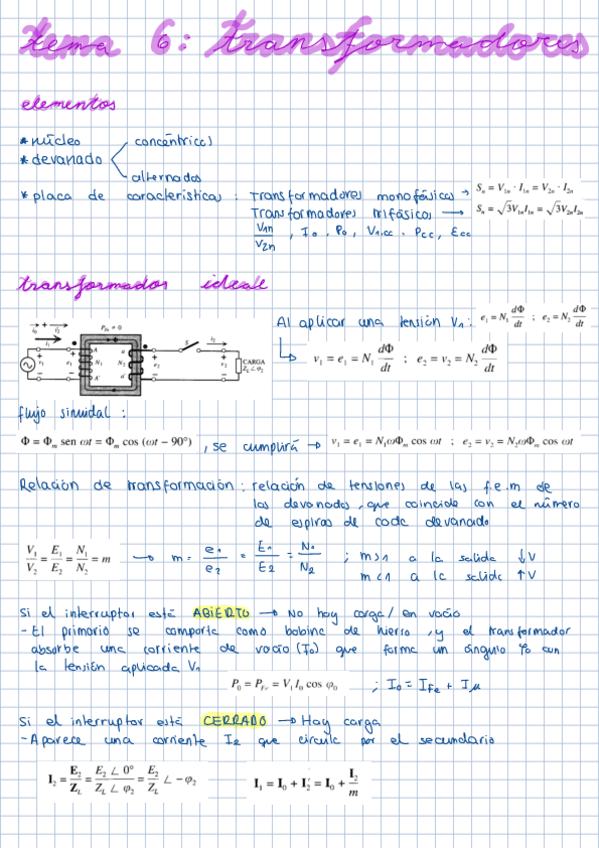 tema 6: transformadores
elementos
* núcleo
concéntricos
* devanado
alternados
* placa de características : Transformadores monofásicos → Sₙ = V₁ₙ · I₁ₙ = V₂ₙ · I₂ₙ
Transformadores trifásicos → Sₙ = √3V₁ₙI₁ₙ = √3V₂ₙI₂ₙ
V1n/V2n , Io , Po, V1cc , Pcc, Ecc
transformados ideale
Al aplicar una tensión V₁: e₁ = N₁ dΦ/dt ; e₂ = N₂ dΦ/dt
v₁ = e₁ = N₁ dΦ/dt ; e₂ = v₂ = N₂ dΦ/dt
P_Fe = 0
CARGA
Z_L∠φ₂
flujo sinuidal :
Φ = Φₘ sen ωt = Φₘ cos (ωt − 90°) , se cumplirá → v₁ = e₁ = N₁ωΦₘ cos ωt ; e₂ = v₂ = N₂ωΦₘ cos ωt
Relación de transformación : relación de tensiones de las f.e.m de
los devanados, que coincide con el número
de espiras de cada devanado
V₁/V₂ = E₁/E₂ = N₁/N₂ = m → m = e₁/e₂ = E₁/E₂ = N₁/N₂ ; m>1 a la salida ↓V
m<1 a la salida ↑V
Si el interruptor está ABIERTO → No hay carga / en vacío
- El primario se comporta como bobina de hierro , y el transformador
absorbe una corriente de vacío (I₀) que forma un ángulo φ₀ con
la tensión aplicada V₁
P₀ = P_Fe = V₁I₀ cos φ₀ ; I₀ = I_Fe + Iμ
Si el interruptor está CERRADO → Hay carga
- Aparece una corriente I₂ que circula por el secundario
I₂ = E₂/Z_L = E₂∠0°/Z_L∠φ₂ = E₂/Z_L ∠−φ₂
I₁ = I₀ + I₂' = I₀ + I₂/m